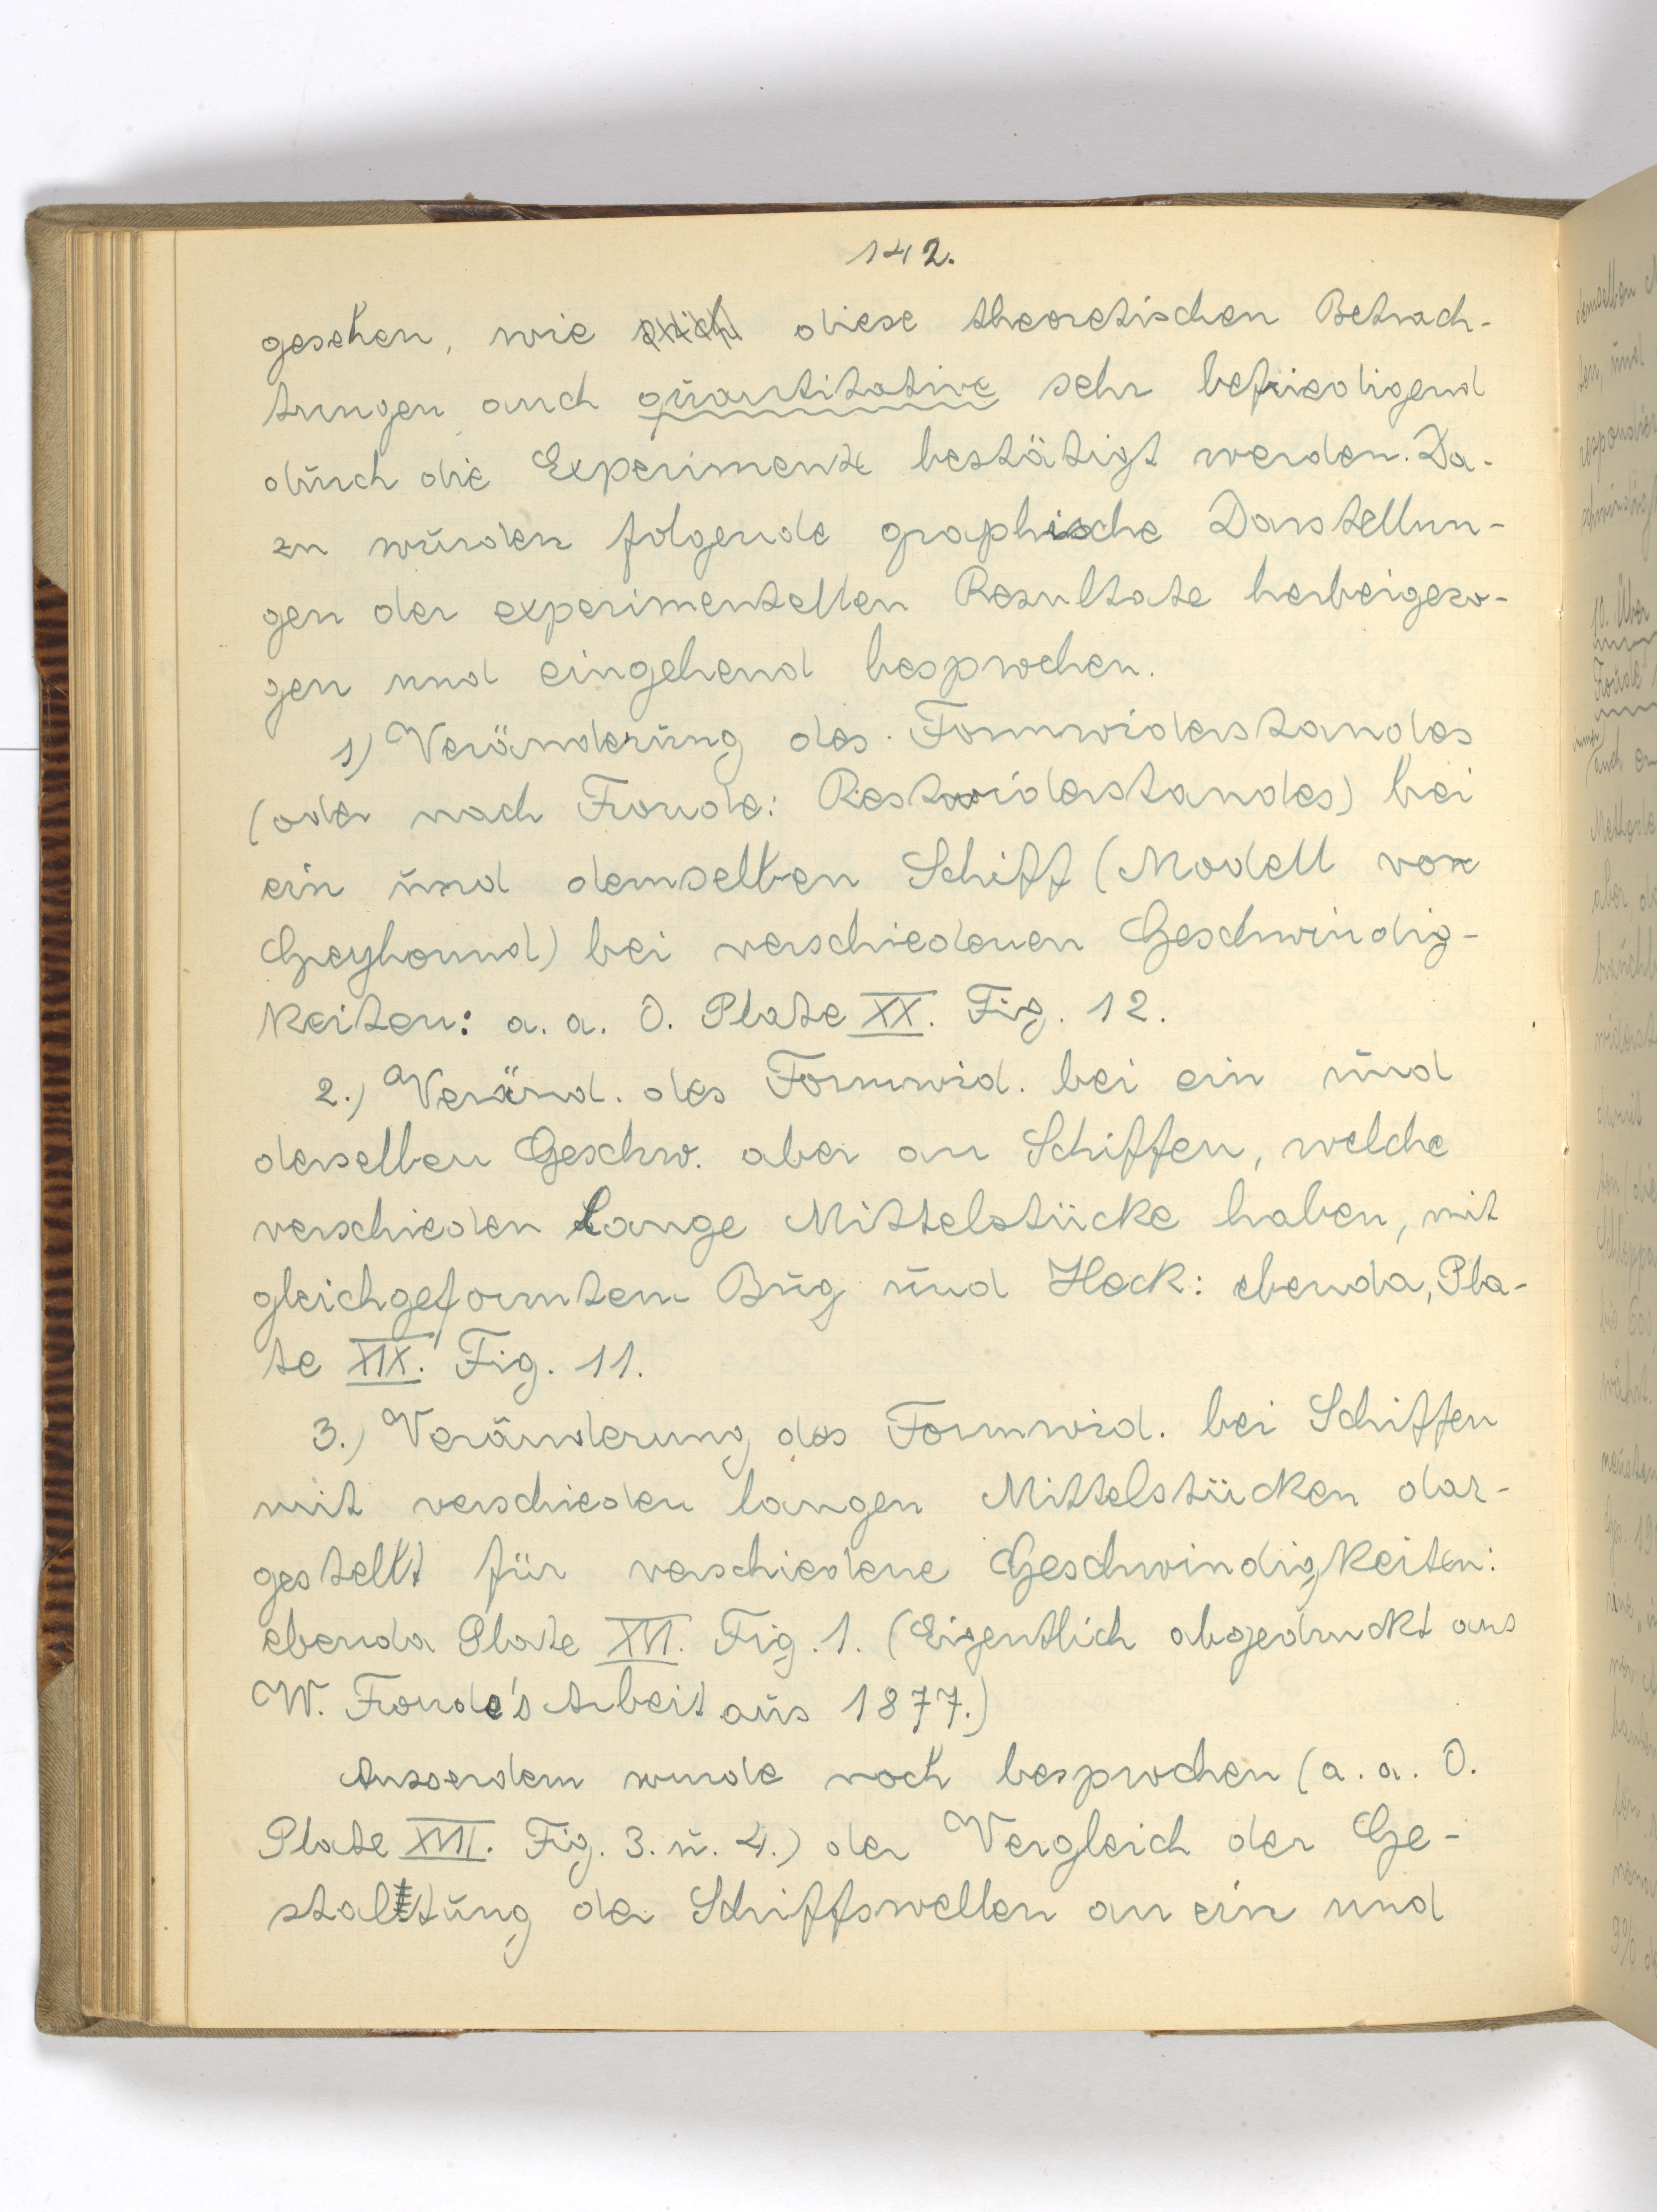 142.
gesehen, wie diese theoretischen Betrach-
tungen auch quantitative sehr befriedigend
durch die Experimente bestätigt werden. Da-
zu wurden folgende graphische Darstellun-
gen der experimentellen Resultate herbeigezo-
gen und eingehend besprochen.
1) Veränderung des Formwiderstandes
(oder nach Froude: Restwiderstandes) bei
ein und demselben Schiff (Modell von
Greyhound) bei verschiedenen Geschwindig-
keiten: a. a. O. Plate XX. Fig. 12.
2.) Veränd. des Formwid. bei ein und
derselben Geschw. aber an Schiffen, welche
verschieden lange Mittelstücke haben, mit
gleichgeformtem Bug und Heck: ebenda, Pla-
te XIX. Fig. 11.
3.) Veränderung des Formwid. bei Schiffen
mit verschieden langen Mittelstücken dar-
gestellt für verschiedene Geschwindigkeiten:
ebenda Plate XVI. Fig. 1. (Eigentlich abgedruckt aus
W. Froude's Arbeit aus 1877.)
Ausserdem wurde noch besprochen (a. a. O.
Plate XVII. Fig. 3. u. 4.) der Vergleich der Ge-
staltung der Schiffswellen an ein und